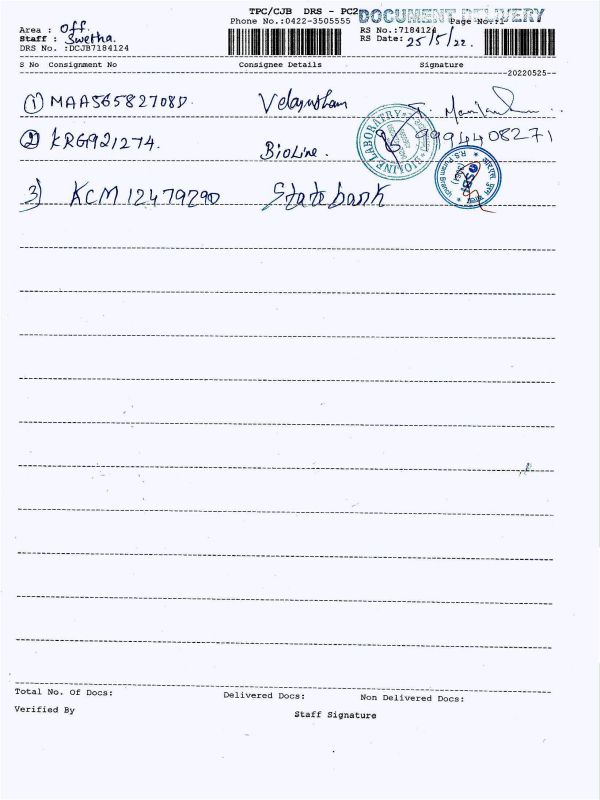 TPC/CJB DRS - PC2 DOCUMENT DELIVERY
Phone No.:0422-3505555 Page No.:1
Area : Off.
Staff : Swetha.
DRS No. :DCJB7184124
RS No.:7184124
RS Date: 25/5/22.
S No Consignment No Consignee Details Signature
--20220525--
① MAA565827080. Velayutham
② KRG921274. BioLine. 9994408271
BIOLINE LABORATRY
3) KCM 12479290 State bank
SBI R.S. Puram
Total No. Of Docs: Delivered Docs: Non Delivered Docs:
Verified By Staff Signature